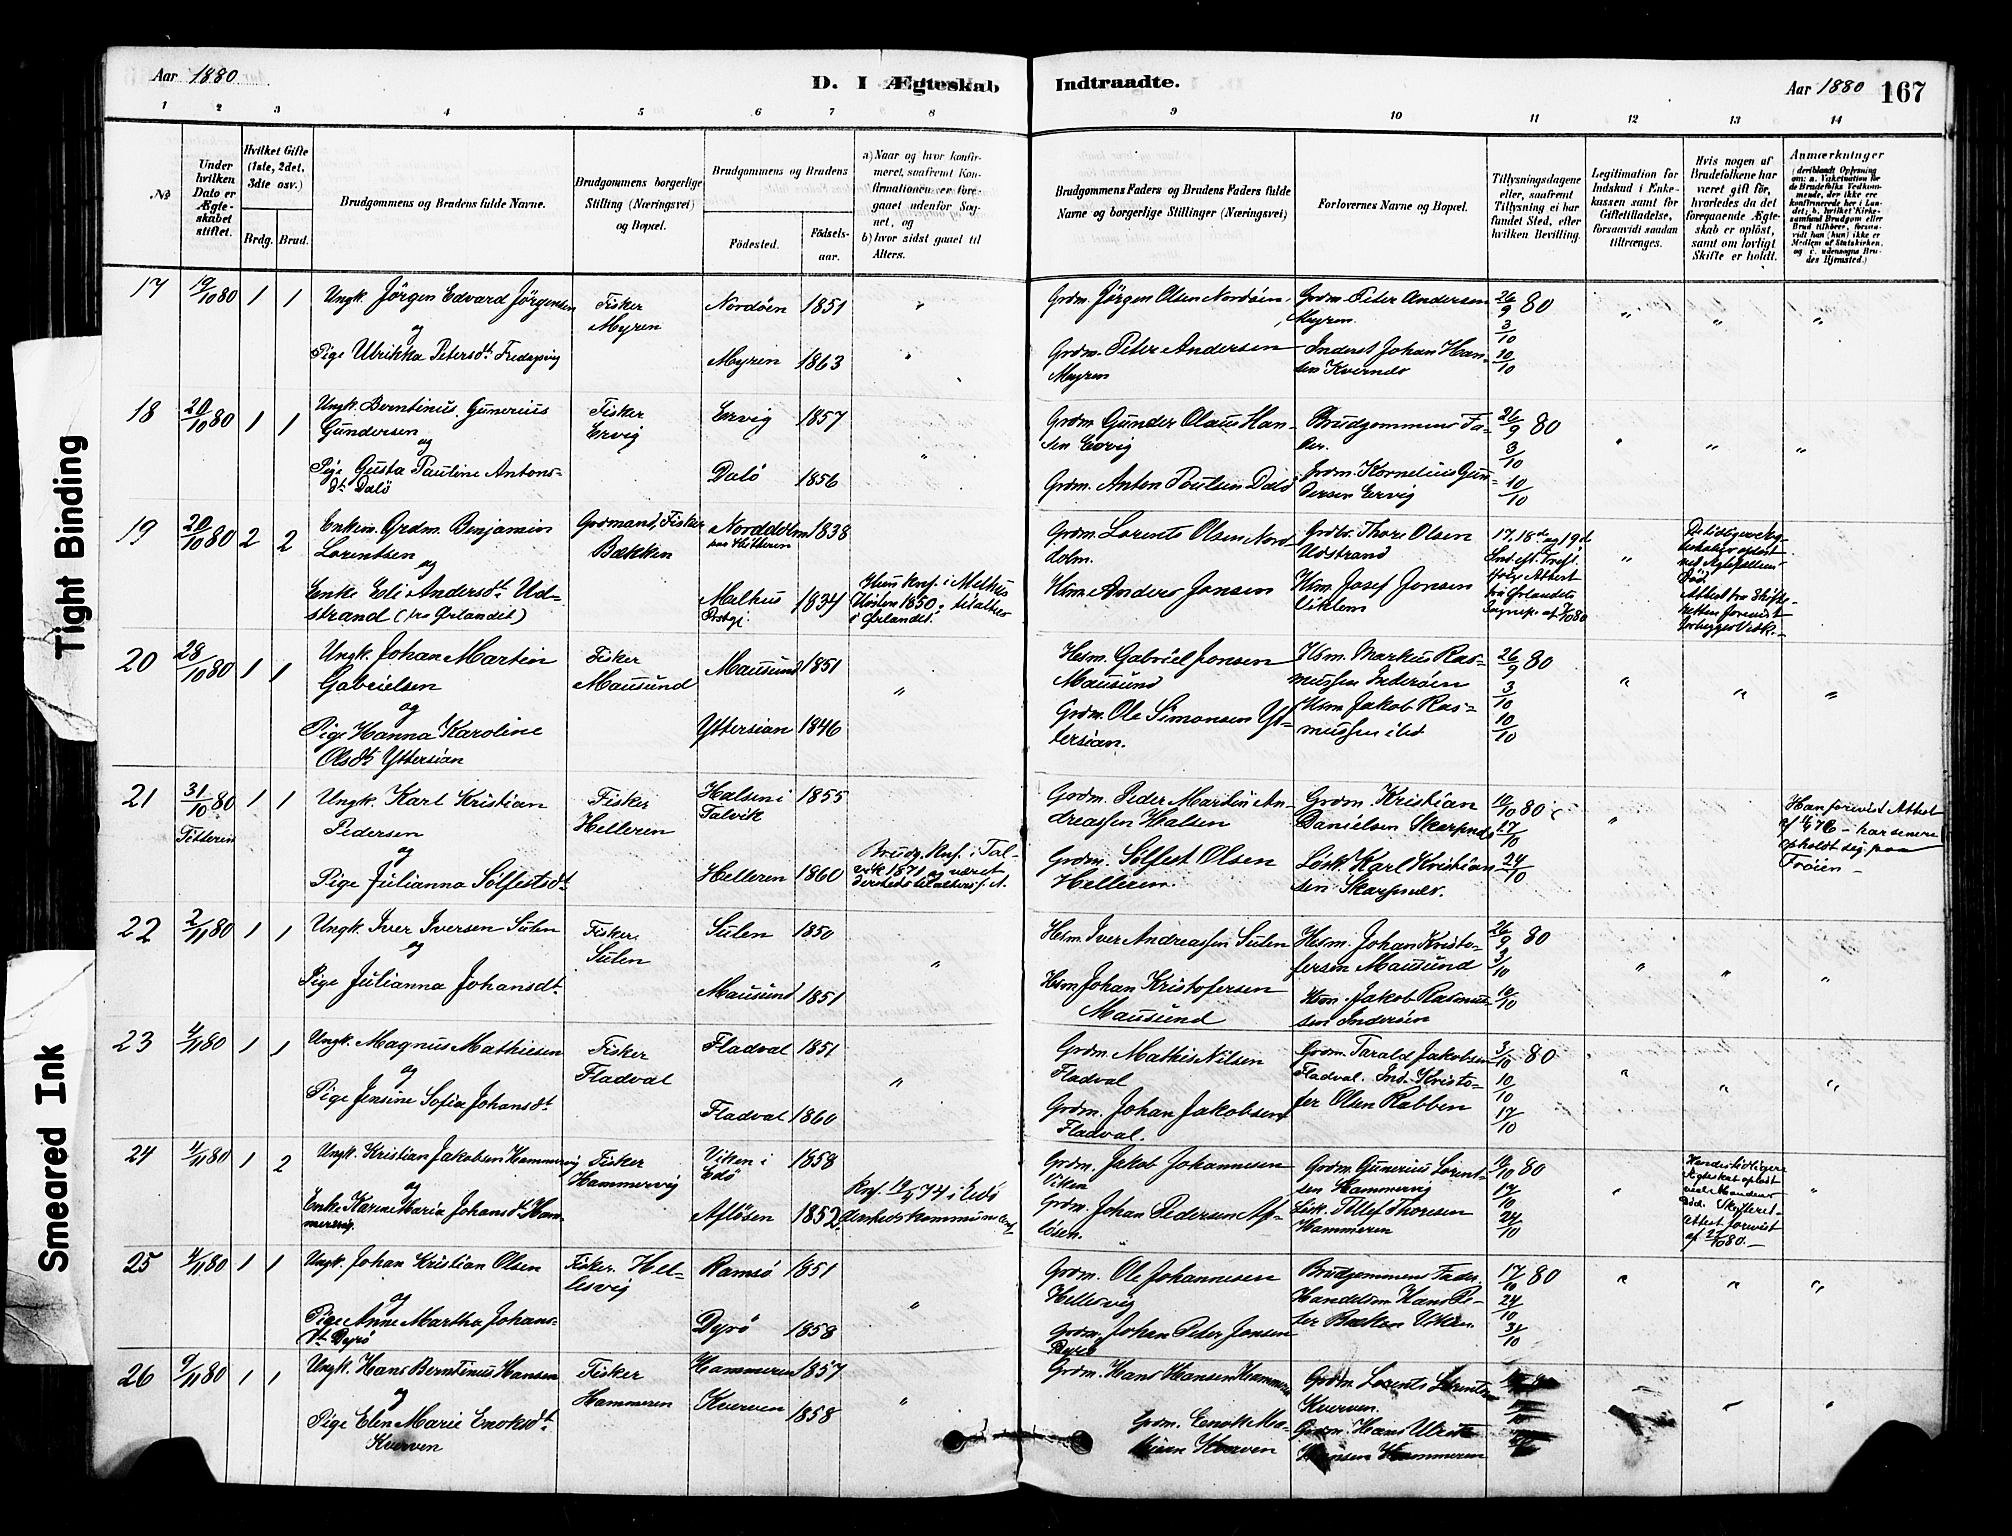 Aar 1880
D. I Ægteskab Indtraadte.
Aar 1880 167
1 2 3 4 5 6 7 8 9 10 11 12 13 14
No
Under hvilken Dato er Ægteskabet stiftet.
Hvilket Gifte (1ste, 2det, 3die osv.)
Brdg. Brud.
Brudgommens og Brudens fulde Navne.
Brudgommens borgerlige Stilling (Næringsvei) og Bopæl.
Brudgommens og Brudens
Fødested.
Fødselsaar.
a) Naar og hvor konfirmeret, saafremt Konfirmationen er foregaaet udenfor Sognet, og
b) hvor sidst gaaet til Alters.
Brudgommens Faders og Brudens Faders fulde Navne og borgerlige Stillinger (Næringsvei)
Forlovernes Navne og Bopæl.
Tillysningsdagene eller, saafremt Tillysning ei har fundet Sted, efter hvilken Bevilling.
Legitimation for Indskud i Enkekassen samt for Giftetilladelse, forsaavidt saadan tiltrænges.
Hvis nogen af Brudefolkene har været gift før, hvorledes da det foregaaende Ægteskab er opløst, samt om lovligt Skifte er holdt.
Anmærkninger
17 19/10 80 1 1 Ungk. Jörgen Edvard Jörgensen Fisker Nordöen 1851 " Grdm. Jörgen Olsen Nordöen Grdm. Peter Andersen 26/9 80 " " "
og Myren Myren 3/10
Pige Ulrikka Petersdt. Myren 1863 " Grdm. Peter Andersen Inderst Johan Han- 10/10
Myren sen Kvernes
18 20/10 80 1 1 Ungk. Berntinus Gunerius Fisker Ervig 1857 Grdm Gunder Olaus Han- Brudgommens Fa- 26/9 80 " " "
Gundersen Ervig sen Ervig der. 3/10
og
Pige Gusta Pauline Antons- Dalö 1856 " Grdm. Anton Poulsen Dalö Grdm. Kornelius Gun- 10/10
dt. Dalö dersen Ervig
19 20/10 80 2 2 Enkm. Grdm. Benjamin Grdmand, Fisker 1838 Grdm Lorents Olsen Nord- Thore Olsen 17, 18de og 19de
Lorentsen Bækken Udstrand
og
Enke Eli Andersdt. Ud- Melhus 1834 Hun Knf. i Melhus Hsm. Anders Jonsen Hsm Josef Jonsen
strand (fra Ørlandet) Prstgj. Hösten 1850; til alters i Ørlandet. "
20 28/10 80 1 1 Ungk. Johan Martin Fisker Mausund 1851 Hsm. Gabriel Jonsen Hsm. Markus Ras- 26/9 80
Gabrielsen Mausund " Mausund mussen Inderöen 3/10 " " "
og
Pige Hanna Karoline Yttersian 1846 Grdm. Ole Simonsen Yt- Hsm. Jakob Ras- 10/10
Olsdt. Yttersian tersian. mussen ibd
21 31/10 80 1 1 Ungk. Karl Kristian Fisker Halsen i 1855 Grdm. Peder Martin An- Grdm. Kristian 10/10 80 " Han forevist Attest
Titteren Pedersen Helleren Talvik dreassen Halsen Danielsen 17/10 har senere
og opholdt sig paa
Pige Julianna Sölfestsdt. Helleren 1860 Brudg. Knf. i Tal- Grdm. Sölfest Olsen Karl Kristian- 24/10 Fröien
vik 1871 og været Helleren sen
22 2/11 80 1 1 Ungk. Iver Iversen Sulen Fisker Sulen 1850 Hsm. Iver Andreassen Sulen Hsm. Johan Kristo- 26/9 80
og Sulen " fersen Mausund 3/10 " " "
Pige Julianna Johansdt. Mausund 1851 Hsm Johan Kristofersen Hsm. Jakob Rasmus- 10/10
Mausund sen Inderöen
23 4/11 80 1 1 Ungk. Magnus Mathiesen Fisker Fladval 1851 Grdm. Mathis Nilsen Grdm. Tarald Jakobsen 3/10 80
og Fladval " Fladval Fladval. Ind. Kristo- 10/10 " " "
Pige Jensine Sofia Johansdt. Fladval 1860 Grdm. Johan Jakobsen fer Olsen Rabben 17/10
Fladval.
24 4/11 80 1 2 Ungk. Kristian Jakobsen Hammervig Fisker Viken i 1858 Grdm. Jakob Johannesen Grdm. Gunerius Lorent- 10/10 80
og Hammervig Edö Knf. 74 i Edö Viken sen Hammervig 17/10 " "
Enke Karen Maria Johansdt. Ham- Aflösen 1852 Grdm. Johan Pedersen Af- Tollef Thoresen 24/10
mervig. lösen. Hammeren
25 4/11 80 1 1 Ungk. Johan Kristian Olsen Fisker Hel- Ramsö 1851 Grdm. Ole Johannesen Brudgommens Fader. 17/10 80 " " "
og lesvig " Hellesvig Handelsm. Hans Pe- 24/10
Pige Anne Martha Johans- Dyrö 1858 Grdm. Johan Peter Jonsen ter Viken 31/10
dt. Dyrö Dyrö
26 9/11 80 1 1 Ungk. Hans Berntinus Hansen Fisker Hammeren 1857 Grdm. Hans Hansen Hammeren Grdm. Lorents Lorentsen
og Hammeren " Kverven. " " "
Pige Elen Marie Enoksdt. Kverven 1858 Grdm. Enok Grdm. Hans Ulrik
Kverven Kverven Hansen Hammeren
Tight Binding
Smeared Ink